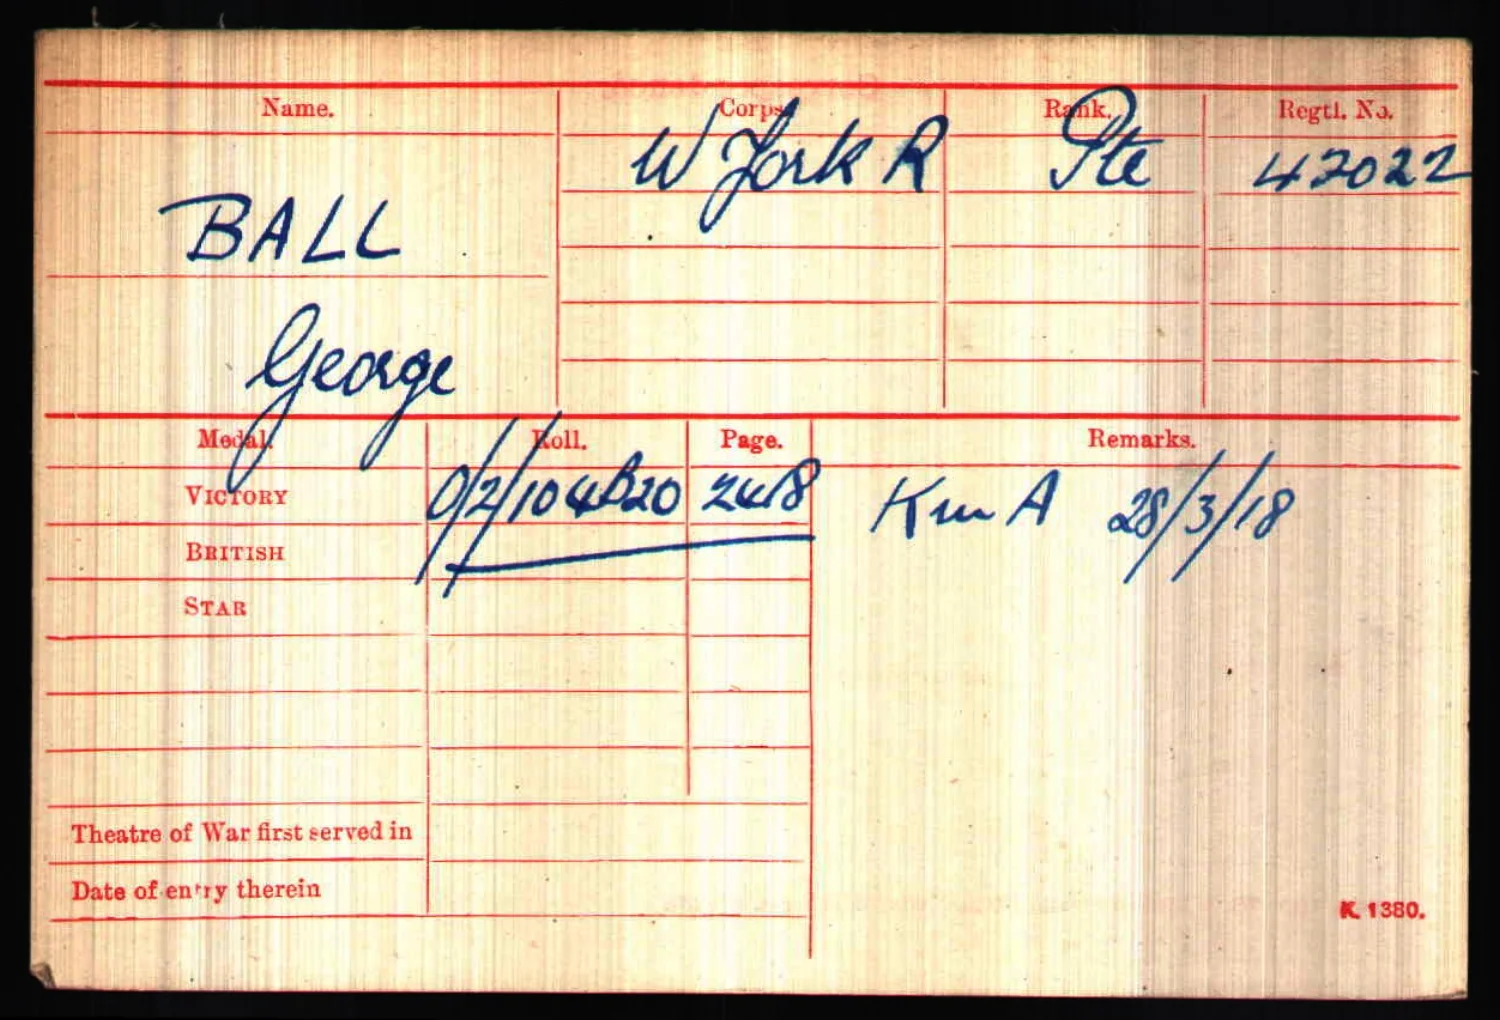 Name. Corps. Rank. Regtl. No.
W York R Pte 42022
BALL
George
Medal. Roll. Page. Remarks.
VICTORY O/2/104B20 2418 K in A 28/3/18
BRITISH
STAR
Theatre of War first served in
Date of entry therein
K. 1380.